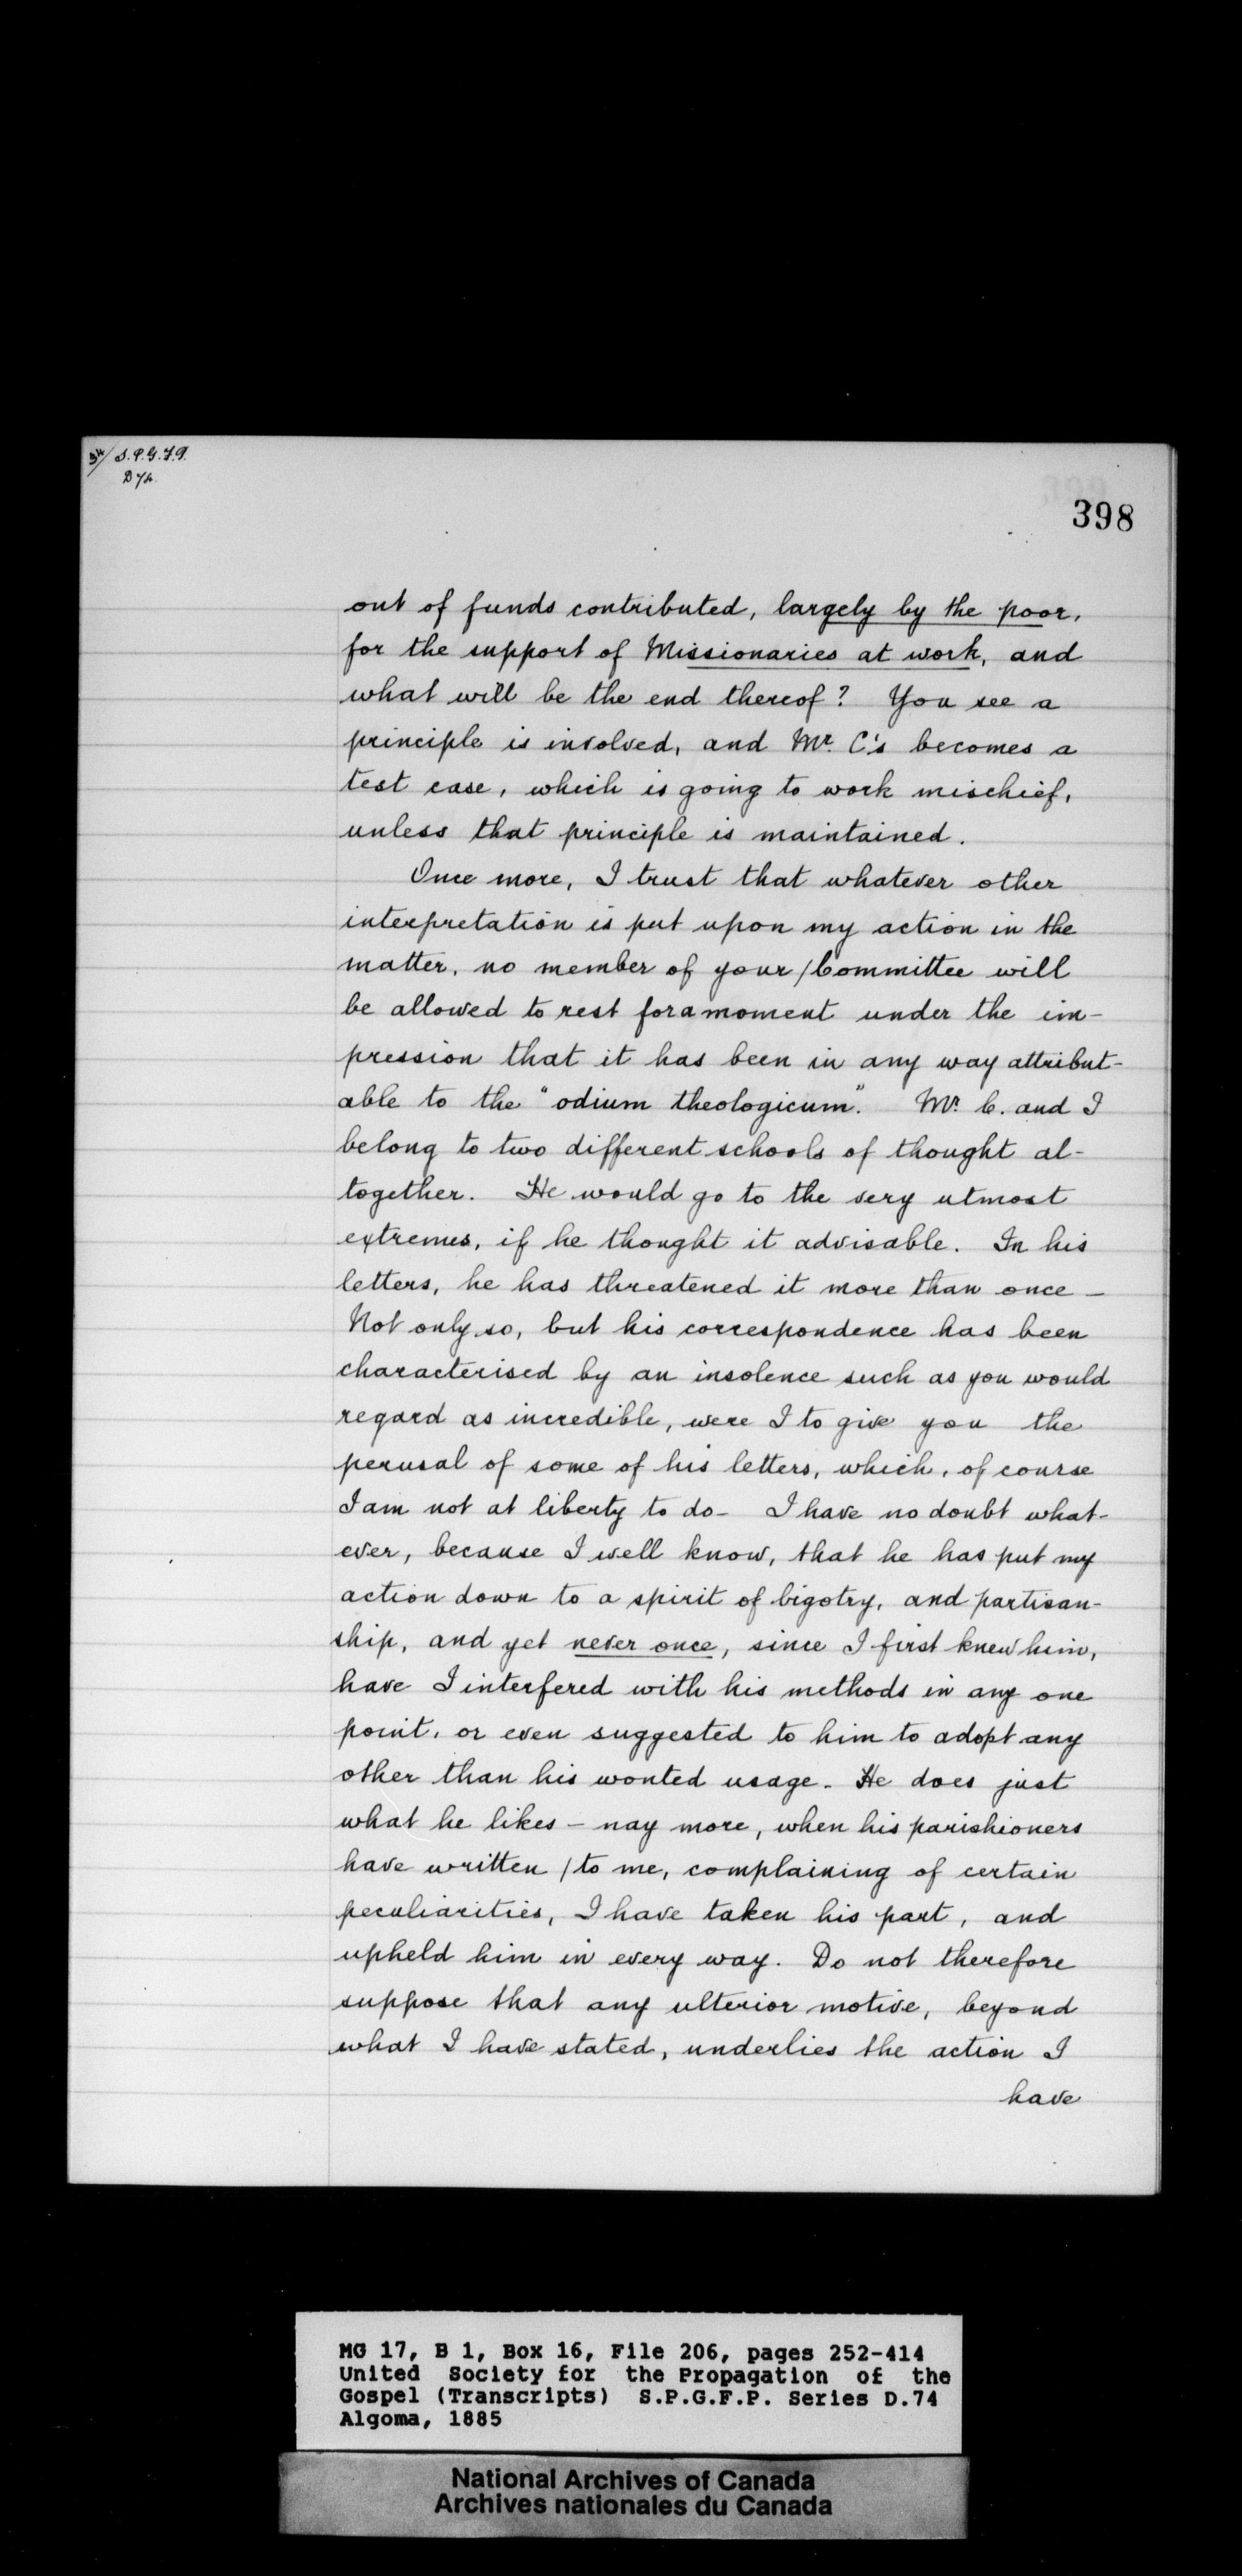 34/ S.P.G.F.P.
D 74.
398
out of funds contributed, largely by the poor,
for the support of Missionaries at work, and
what will be the end thereof? You see a
principle is involved, and Mr. C's becomes a
test case, which is going to work mischief,
unless that principle is maintained.
Once more, I trust that whatever other
interpretation is put upon my action in the
matter, no member of your /Committee will
be allowed to rest for a moment under the im-
pression that it has been in any way attribut-
able to the "odium theologicum". Mr. C. and I
belong to two different schools of thought al-
together. He would go to the very utmost
extremes, if he thought it advisable. In his
letters, he has threatened it more than once -
Not only so, but his correspondence has been
characterised by an insolence such as you would
regard as incredible, were I to give you the
perusal of some of his letters, which, of course
I am not at liberty to do - I have no doubt what-
ever, because I well know, that he has put my
action down to a spirit of bigotry, and partisan-
ship, and yet never once, since I first knew him,
have I interfered with his methods in any one
point, or even suggested to him to adopt any
other than his wonted usage. He does just
what he likes - nay more, when his parishioners
have written /to me, complaining of certain
peculiarities, I have taken his part, and
upheld him in every way. Do not therefore
suppose that any ulterior motive, beyond
what I have stated, underlies the action I
have
MG 17, B 1, Box 16, File 206, pages 252-414
United Society for the Propagation of the
Gospel (Transcripts) S.P.G.F.P. Series D.74
Algoma, 1885
National Archives of Canada
Archives nationales du Canada